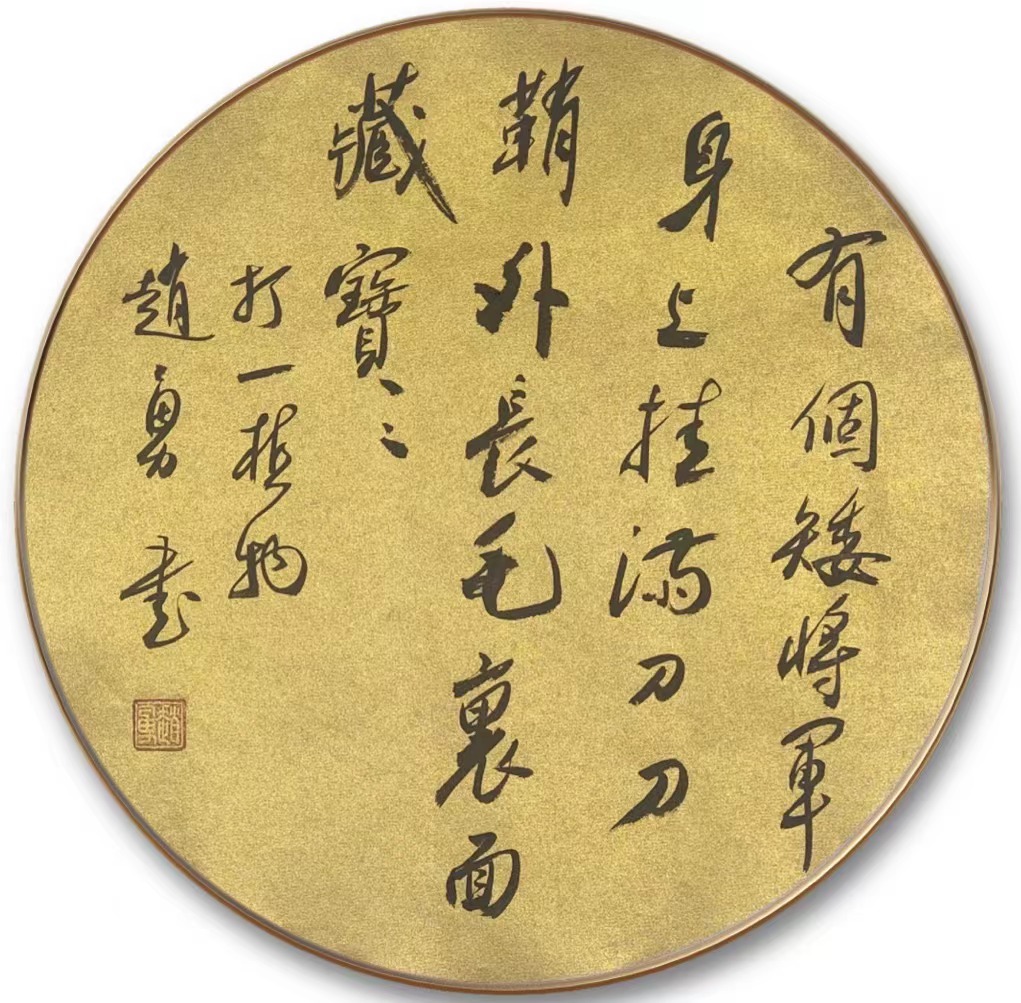 有個矮將軍
身上挂满刀刀
鞘外長毛裏面
藏寶寶
打一植物
趙勇書
趙勇